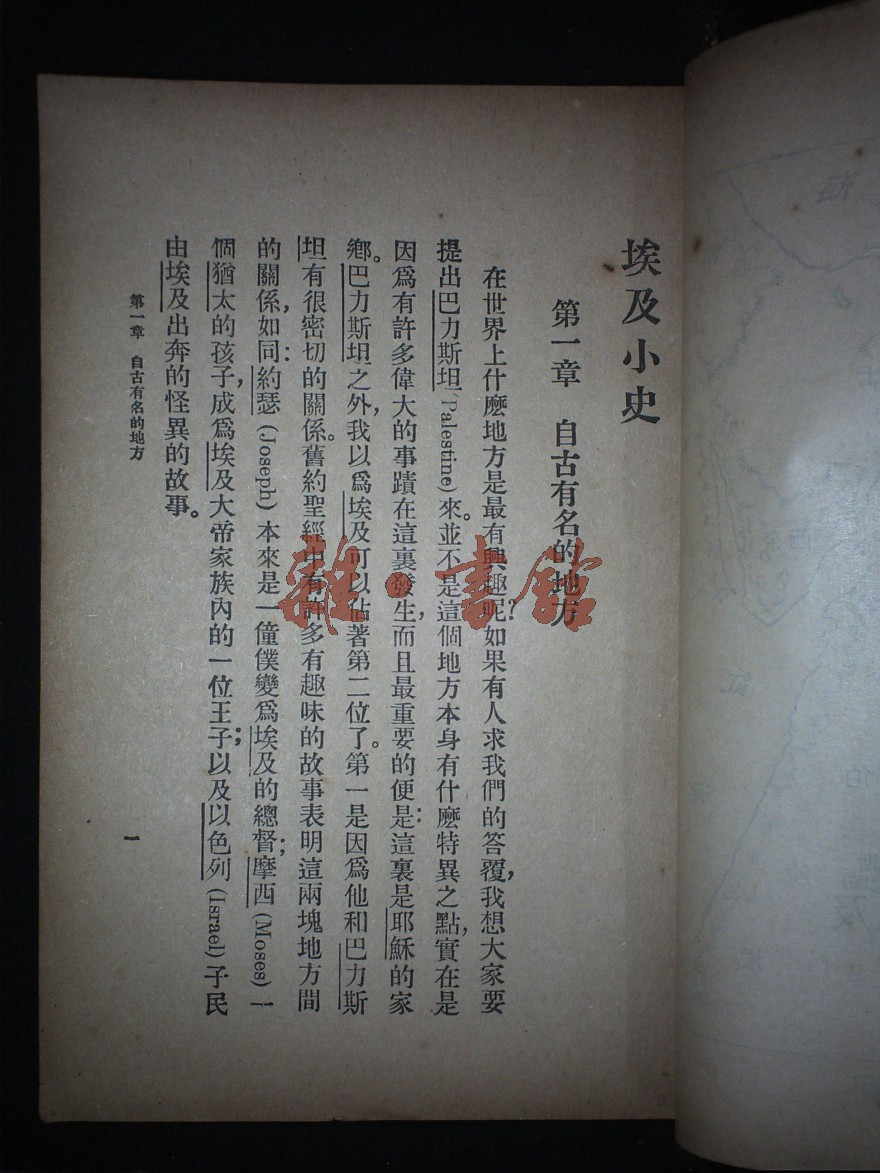 埃及小史
第一章 自古有名的地方
在世界上什麼地方是最有興趣呢？如果有人求我們的答覆，我想大家要
提出巴力斯坦(Palestine)來。並不是這個地方本身有什麼特異之點，實在是
因爲有許多偉大的事蹟在這裏發生，而且最重要的便是：這裏是耶穌的家
鄉。巴力斯坦之外，我以爲埃及可以佔著第二位了。第一是因爲他和巴力斯
坦有很密切的關係。舊約聖經中有許多有趣味的故事表明這兩塊地方間
的關係，如同：約瑟(Joseph)本來是一僮僕變爲埃及的總督；摩西(Moses)一
個猶太的孩子，成爲埃及大帝家族內的一位王子；以及以色列(Israel)子民
由埃及出奔的怪異的故事。
第一章 自古有名的地方
一
雜·書館
海